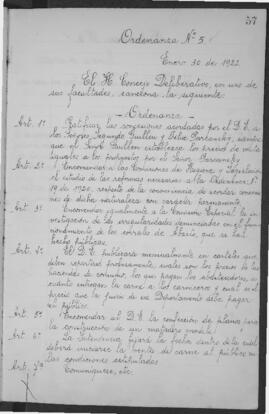 57
Ordenanza Nº 5.
Enero 30 de 1922
El H Concejo Deliberativo, en uso de
sus facultades, sanciona la siguiente:
-Ordenanza-
Art. 1º Ratificar las concesiones acordadas por el D.E. a
los Señores Segundo Guillen y Félix
que el Señor Guillen los precios de venta
por el Señor
Art. 2º Encomendar a las Comisiones de Hacienda y
el estudio de las reformas necesarias a la Ordenanza Nº
19 de 1920, respecto de la conveniencia de acordar concesiones
de dicha naturaleza con carácter permanente.
Art. 3º Encomendar igualmente a la Comisión Especial la
de las irregularidades denunciadas en el
del contrato de Abasto, que se han
hecho públicas.
Art. 4º El D.E. publicará mensualmente en carteles que
deben repartirse profusamente, cuales son los precios de las
haciendas de consumo, los que pagan los abastecedores, en
cuánto entregan la carne a los carniceros y cual es el
precio que la Departamento debe pagar
el público.
Art. 5º Encomendar al D.E. la confección de planos para
la construcción de un matadero modelo.
Art. 6º La Intendencia fijará la fecha dentro de la cual
deberá iniciarse la venta de carne al público en
las condiciones estipuladas.
Art. 7º Comuníquese, etc.